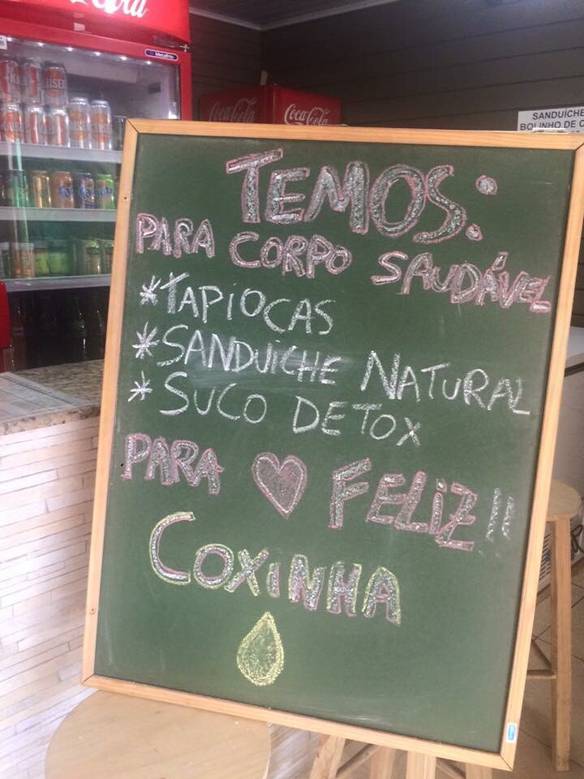 Coca-Cola
SANDUÍCHE
BOLINHO DE
TEMOS:
PARA CORPO SAUDÁVEL
*TAPIOCAS
*SANDUICHE NATURAL
* SUCO DETOX
PARA ♥ FELIZ!!!
COXINHA